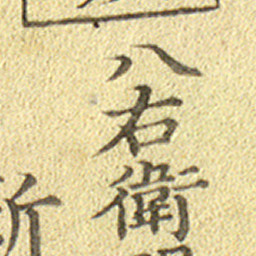 八右衛
新